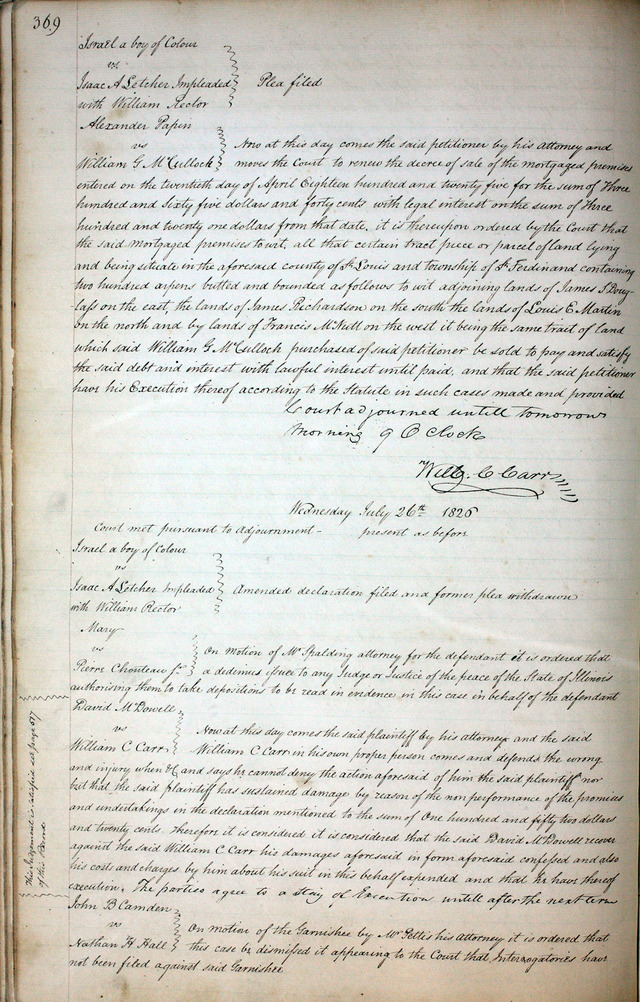 369
Israel a boy of Colour
vs
Isaac A Letcher Impleaded
with William Rector
Plea filed
Alexander Papin
vs
William G. McCulloch
Now at this day comes the said petitioner by his Attorney and
moves the Court to renew the decree of sale of the mortgaged premises
entered on the twentieth day of April Eighteen hundred and twenty five for the sum of Three
hundred and Sixty five dollars and forty cents with legal interest on the sum of Three
hundred and twenty one dollars from that date, it is thereupon ordered by the Court that
the said mortgaged premises to wit, all that certain tract piece or parcel of land lying
and being situate in the aforesaid county of St Louis and township of St Ferdinand containing
two hundred arpens butted and bounded as follows to wit adjoining lands of James S Doug-
lass on the east, the lands of James Richardson on the south the lands of Louis E. Martin
on the north and by lands of Francis McNutt on the west it being the same tract of land
which said William G. McCulloch purchased of said petitioner be sold to pay and satisfy
the said debt and interest with lawful interest until paid, and that the said petitioner
have his Execution thereof according to the Statute in such cases made and provided
Court adjourned untill tomorrow
Morning 9 O Clock
Will. C Carr
Wednesday July 26th 1826
Court met pursuant to adjournment - present as before
Israel a boy of Colour
vs
Isaac A Letcher Impleaded
with William Rector
Amended declaration filed and former plea withdrawn
Mary
vs
Pierre Chouteau Jr
On motion of Mr Spalding attorney for the defendant it is ordered that
a dedimus issue to any Judge or Justice of the peace of the State of Illinois
authorising them to take depositions to be read in evidence in this case in behalf of the defendant
David McDowell
vs
William C Carr
Now at this day comes the said plaintiff by his attorney and the said
William C Carr in his own proper person comes and defends the wrong
and injury when &c and says he cannot deny the action aforesaid of him the said plaintiff nor
but that the said plaintiff has sustained damage by reason of the non performance of the promises
and undertakings in the declaration mentioned to the sum of One hundred and fifty two dollars
and twenty cents. Therefore it is considered it is considered that the said David McDowell recover
against the said William C Carr his damages aforesaid in form aforesaid confessed and also
his costs and charges by him about his suit in this behalf expended and that he have thereof
execution. The parties agree to a stay of Execution untill after the next term
This Judgement is satisfied see page 517
of this Record
John B Camden
vs
Nathan H Hall
On motion of the Garnishee by Mr Pettis his Attorney it is ordered that
this case be dismissed it appearing to the Court that Interrogatories have
not been filed against said Garnishee